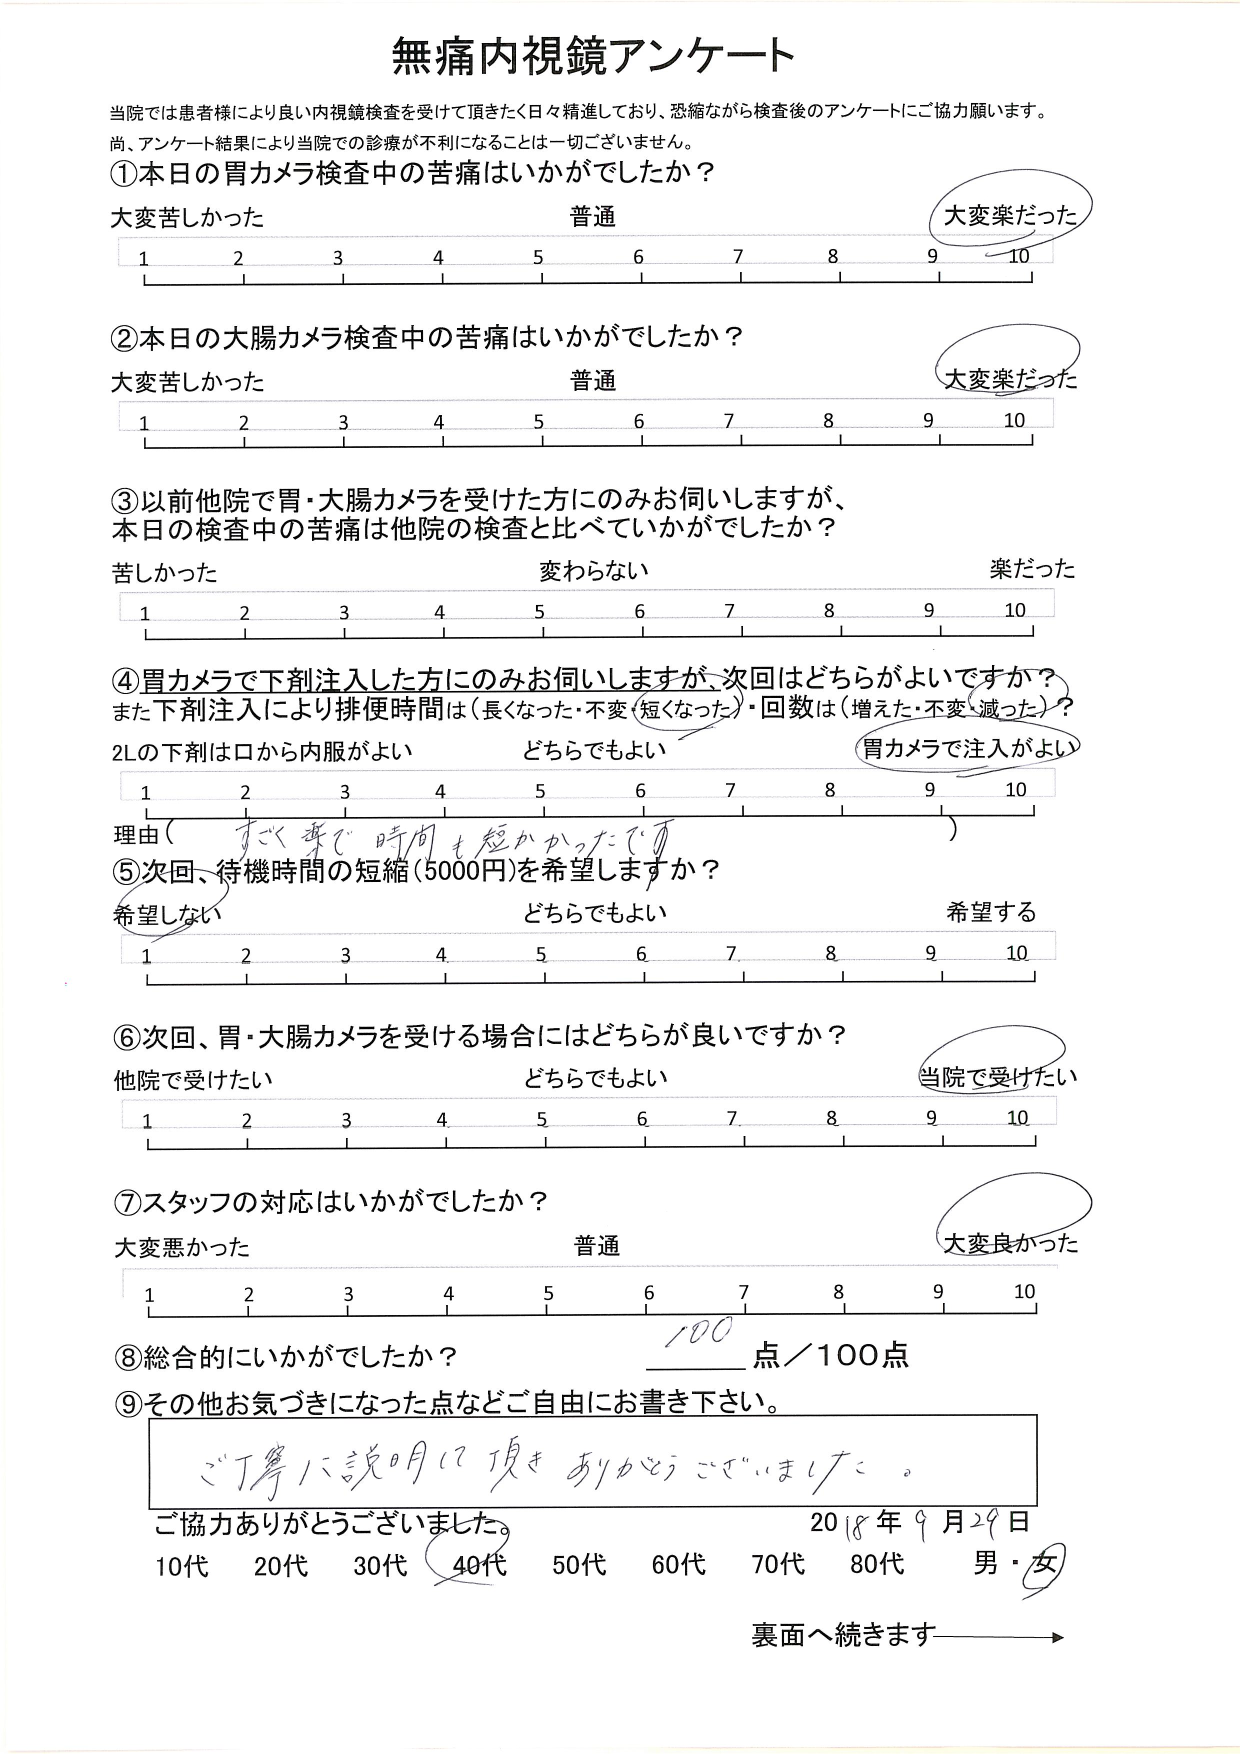 無痛内視鏡アンケート
当院では患者様により良い内視鏡検査を受けて頂きたく日々精進しており、恐縮ながら検査後のアンケートにご協力願います。
尚、アンケート結果により当院での診療が不利になることは一切ございません。
①本日の胃カメラ検査中の苦痛はいかがでしたか？
大変苦しかった 普通 大変楽だった
1 2 3 4 5 6 7 8 9 10
②本日の大腸カメラ検査中の苦痛はいかがでしたか？
大変苦しかった 普通 大変楽だった
1 2 3 4 5 6 7 8 9 10
③以前他院で胃・大腸カメラを受けた方にのみお伺いしますが、
本日の検査中の苦痛は他院の検査と比べていかがでしたか？
苦しかった 変わらない 楽だった
1 2 3 4 5 6 7 8 9 10
④胃カメラで下剤注入した方にのみお伺いしますが、次回はどちらがよいですか？
また下剤注入により排便時間は（長くなった・不変・短くなった）・回数は（増えた・不変・減った）？
2Lの下剤は口から内服がよい どちらでもよい 胃カメラで注入がよい
1 2 3 4 5 6 7 8 9 10
理由（ すごく楽で 時間も短かかったです ）
⑤次回、待機時間の短縮（5000円）を希望しますか？
希望しない どちらでもよい 希望する
1 2 3 4 5 6 7 8 9 10
⑥次回、胃・大腸カメラを受ける場合にはどちらが良いですか？
他院で受けたい どちらでもよい 当院で受けたい
1 2 3 4 5 6 7 8 9 10
⑦スタッフの対応はいかがでしたか？
大変悪かった 普通 大変良かった
1 2 3 4 5 6 7 8 9 10
⑧総合的にいかがでしたか？ 100 点／100点
⑨その他お気づきになった点などご自由にお書き下さい。
ご丁寧に説明して頂き ありがとうございました。
ご協力ありがとうございました。 2018年9月29日
10代 20代 30代 40代 50代 60代 70代 80代 男・女
裏面へ続きます